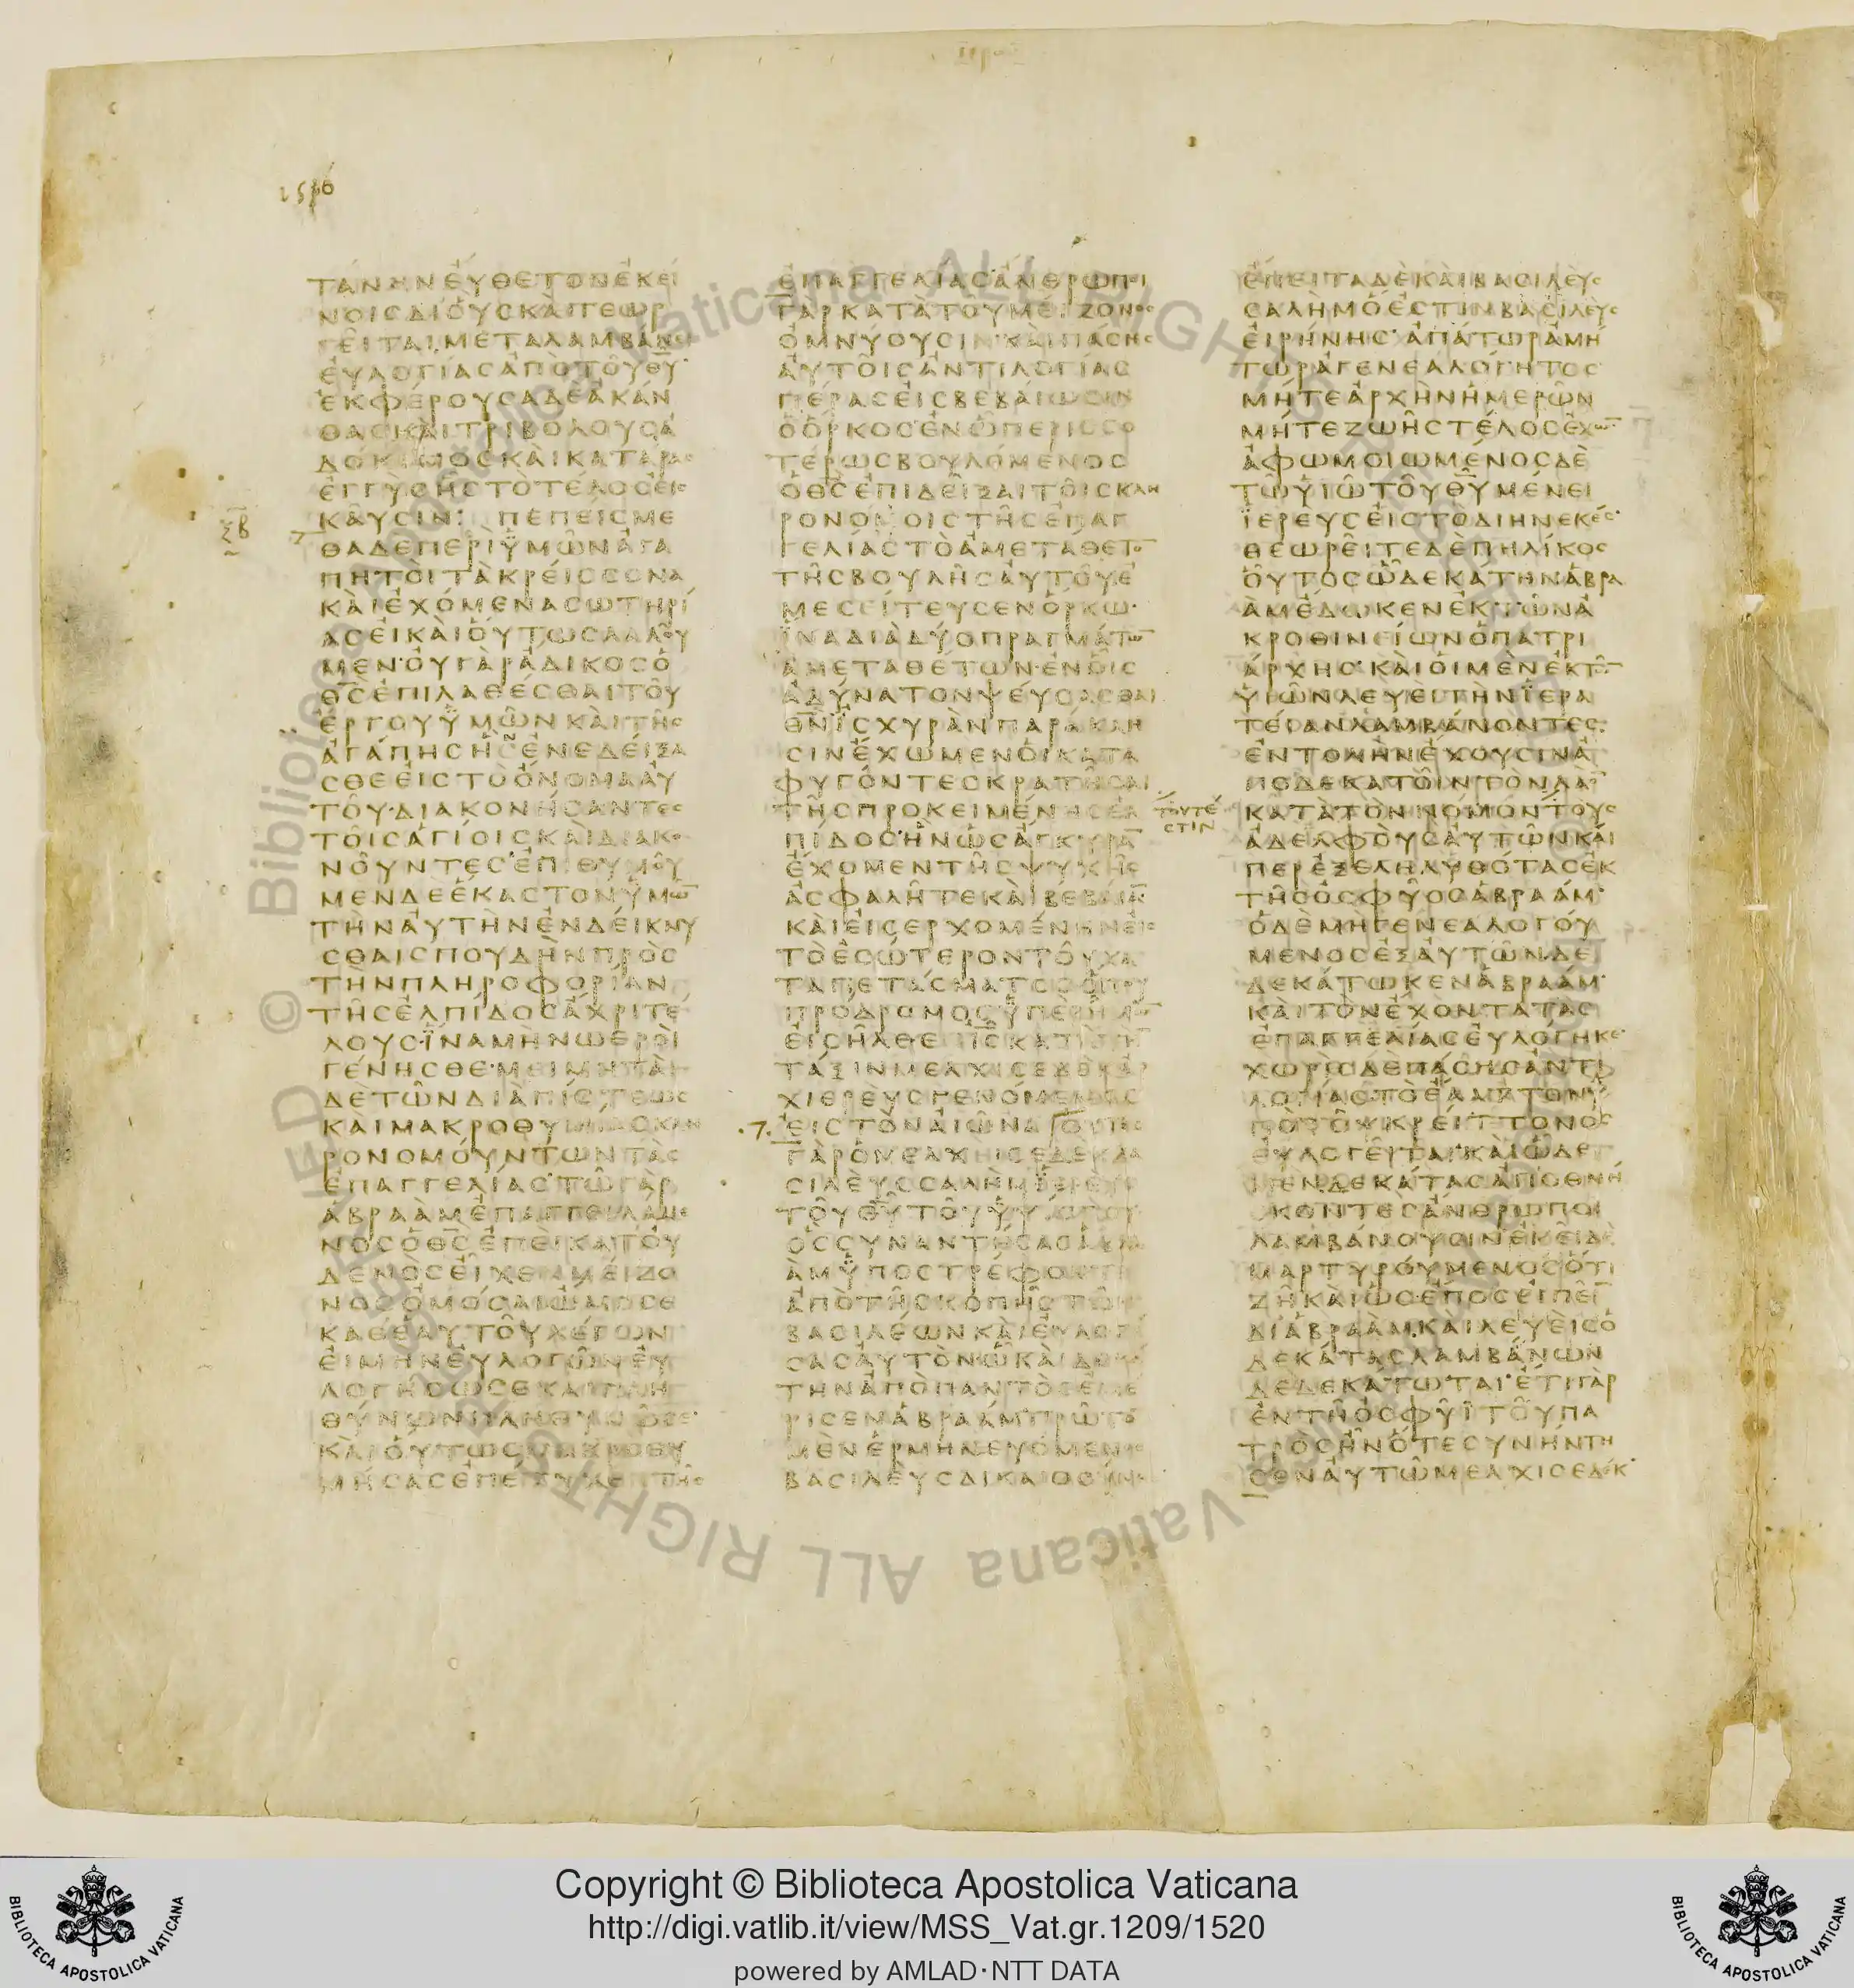 ΤΑΝΗΝΕΥΘΕΤΟΝΕΚΕΙ
ΝΟΙCΔΙΟΥCΚΑΙΓΕΩΡ
ΓΕΙΤΑΙΜΕΤΑΛΑΜΒΑΝΕΙ
ΕΥΛΟΓΙΑCΑΠΟΤΟΥΘΥ
ΕΚΦΕΡΟΥCΑΔΕΑΚΑΝ
ΘΑCΚΑΙΤΡΙΒΟΛΟΥCΑ
ΔΟΚΙΜΟCΚΑΙΚΑΤΑΡΑC
ΕΓΓΥCΗCΤΟΤΕΛΟCΕΙC
ΚΑΥCΙΝ: ΠΕΠΕΙCΜΕ
ΘΑΔΕΠΕΡΙΫΜΩΝΑΓΑ
ΠΗΤΟΙΤΑΚΡΕΙCCΟΝΑ
ΚΑΙΕΧΟΜΕΝΑCΩΤΗΡΙ
ΑCΕΙΚΑΙΟΥΤΩCΛΑΛΟΥ
ΜΕΝ·ΟΥΓΑΡΑΔΙΚΟCΟ
ΘCΕΠΙΛΑΘΕCΘΑΙΤΟΥ
ΕΡΓΟΥΫΜΩΝΚΑΙΤΗC
ΑΓΑΠΗCΗCΕΝΕΔΕΙΞΑ
CΘΕΕΙCΤΟΟΝΟΜΑΑΥ
ΤΟΥ·ΔΙΑΚΟΝΗCΑΝΤΕC
ΤΟΙCΑΓΙΟΙCΚΑΙΔΙΑΚΟ
ΝΟΥΝΤΕC·ΕΠΙΘΥΜΟΥ
ΜΕΝΔΕΕΚΑCΤΟΝΫΜΩ̅
ΤΗΝΑΥΤΗΝΕΝΔΕΙΚΝΥ
CΘΑΙCΠΟΥΔΗΝΠΡΟC
ΤΗΝΠΛΗΡΟΦΟΡΙΑΝ
ΤΗCΕΛΠΙΔΟCΑΧΡΙΤΕ
ΛΟΥC·ΪΝΑΜΗΝΩΘΡΟΙ
ΓΕΝΗCΘΕ·ΜΕΙΜΗΤΑΙ
ΔΕΤΩΝΔΙΑΠΙCΤΕΩC
ΚΑΙΜΑΚΡΟΘΥΜΙΑCΚΛΗ
ΡΟΝΟΜΟΥΝΤΩΝΤΑC
ΕΠΑΓΓΕΛΙΑC·ΤΩΓΑΡ
ΑΒΡΑΑΜΕΠΑΓΓΕΙΛΑΜΕ
ΝΟCΟΘCΕΠΕΙΚΑΤΟΥ
ΔΕΝΟCΕΙΧΕΝΜΕΙΖΟ
ΝΟCΟΜΟCΑΙΩΜΟCΕ
ΚΑΘΕΑΥΤΟΥΛΕΓΩΝ
ΕΙΜΗΝΕΥΛΟΓΩΝΕΥ
ΛΟΓΗCΩCΕΚΑΙΠΛΗ
ΘΥΝΩΝΠΛΗΘΥΝΩCΕ·
ΚΑΙΟΥΤΩCΜΑΚΡΟΘΥ
ΜΗCΑCΕΠΕΤΥΧΕΤΗC
ΕΠΑΓΓΕΛΙΑC·ΑΝΘΡΩΠΟΙ
ΓΑΡΚΑΤΑΤΟΥΜΕΙΖΟΝΟC
ΟΜΝΥΟΥCΙΝΚΑΙΠΑCΗC
ΑΥΤΟΙCΑΝΤΙΛΟΓΙΑC
ΠΕΡΑCΕΙCΒΕΒΑΙΩCΙΝ
ΟΟΡΚΟCΕΝΩΠΕΡΙCCΟ
ΤΕΡΩCΒΟΥΛΟΜΕΝΟC
ΟΘCΕΠΙΔΕΙΞΑΙΤΟΙCΚΛΗ
ΡΟΝΟΜΟΙCΤΗCΕΠΑΓ
ΓΕΛΙΑCΤΟΑΜΕΤΑΘΕΤΟ̅
ΤΗCΒΟΥΛΗCΑΥΤΟΥΕ
ΜΕCΕΙΤΕΥCΕΝΟΡΚΩ·
ΪΝΑΔΙΑΔΥΟΠΡΑΓΜΑΤΩ̅
ΑΜΕΤΑΘΕΤΩΝ·ΕΝΟΙC
ΑΔΥΝΑΤΟΝΨΕΥCΑCΘΑΙ
ΘΝΪCΧΥΡΑΝΠΑΡΑΚΛΗ
CΙΝΕΧΩΜΕΝΟΙΚΑΤΑ
ΦΥΓΟΝΤΕCΚΡΑΤΗCΑΙ
ΤΗCΠΡΟΚΕΙΜΕΝΗCΕΛ
ΠΙΔΟCΗΝΩCΑΓΚΥΡΑ̅
ΕΧΟΜΕΝΤΗCΨΥΧΗC
ΑCΦΑΛΗΤΕΚΑΙΒΕΒΑΙΑ̅
ΚΑΙΕΙCΕΡΧΟΜΕΝΗΝΕΙC
ΤΟΕCΩΤΕΡΟΝΤΟΥΚΑ
ΤΑΠΕΤΑCΜΑΤΟCΟΠΟΥ
ΠΡΟΔΡΟΜΟCΫΠΕΡΗΜΩ̅
ΕΙCΗΛΘΕΝΙCΚΑΤΑΤΗ̅
ΤΑΞΙΝΜΕΛΧΙCΕΔΕΚΑΡ
ΧΙΕΡΕΥCΓΕΝΟΜΕΝΟC
ΕΙCΤΟΝΑΙΩΝΑΟΥΤΟC
ΓΑΡΟΜΕΛΧΙCΕΔΕΚΒΑ
CΙΛΕΥCCΑΛΗΜΪΕΡΕΥC
ΤΟΥΘΥΤΟΥΫΨΙCΤΟΥ
ΟCCΥΝΑΝΤΗCΑCΑΒΡΑ
ΑΜΫΠΟCΤΡΕΦΟΝΤΙ
ΑΠΟΤΗCΚΟΠΗCΤΩΝ
ΒΑCΙΛΕΩΝΚΑΙΕΥΛΟΓΗ
CΑCΑΥΤΟΝΩΚΑΙΔΕΚΑ
ΤΗΝΑΠΟΠΑΝΤΟCΕΜΕ
ΡΙCΕΝΑΒΡΑΑΜΠΡΩΤΟ̅
ΜΕΝΕΡΜΗΝΕΥΟΜΕΝΟC
ΒΑCΙΛΕΥCΔΙΚΑΙΟCΥΝΗC
ΤΟΥΤΕ
CΤΙΝ
ΕΠΕΙΤΑΔΕΚΑΙΒΑCΙΛΕΥC
CΑΛΗΜΟΕCΤΙΝΒΑCΙΛΕΥC
ΕΙΡΗΝΗC·ΑΠΑΤΩΡΑΜΗ
ΤΩΡΑΓΕΝΕΑΛΟΓΗΤΟC
ΜΗΤΕΑΡΧΗΝΗΜΕΡΩΝ
ΜΗΤΕΖΩΗCΤΕΛΟCΕΧΩ̅·
ΑΦΩΜΟΙΩΜΕΝΟCΔΕ
ΤΩΥΙΩΤΟΥΘΥΜΕΝΕΙ
ΪΕΡΕΥCΕΙCΤΟΔΙΗΝΕΚΕC·
ΘΕΩΡΕΙΤΕΔΕΠΗΛΙΚΟC
ΟΥΤΟCΩΔΕΚΑΤΗΝΑΒΡΑ
ΑΜΕΔΩΚΕΝΕΚΤΩΝΑ
ΚΡΟΘΙΝΕΙΩΝΟΠΑΤΡΙ
ΑΡΧΗC·ΚΑΙΟΙΜΕΝΕΚΤΩ̅
ΥΙΩΝΛΕΥΕΙΤΗΝΪΕΡΑ
ΤΕΙΑΝΛΑΜΒΑΝΟΝΤΕC
ΕΝΤΟΛΗΝΕΧΟΥCΙΝΑ
ΠΟΔΕΚΑΤΟΙΝΤΟΝΛΑΟ̅
ΚΑΤΑΤΟΝΝΟΜΟΝΤΟΥC
ΑΔΕΛΦΟΥCΑΥΤΩΝΚΑΙ
ΠΕΡΕΞΕΛΗΛΥΘΟΤΑCΕΚ
ΤΗCΟCΦΥΟCΑΒΡΑΑΜ·
ΟΔΕΜΗΓΕΝΕΑΛΟΓΟΥ
ΜΕΝΟCΕΞΑΥΤΩΝΔΕ
ΔΕΚΑΤΩΚΕΝΑΒΡΑΑΜ·
ΚΑΙΤΟΝΕΧΟΝΤΑΤΑC
ΕΠΑΓΓΕΛΙΑCΕΥΛΟΓΗΚΕ·
ΧΩΡΙCΔΕΠΑCΗCΑΝΤΙ
ΛΟΓΙΑCΤΟΕΛΑΤΤΟΝΫ
ΠΟΤΟΥΚΡΕΙΤΤΟΝΟC
ΕΥΛΟΓΕΙΤΑΙ·ΚΑΙΩΔΕ
ΜΕΝΔΕΚΑΤΑCΑΠΟΘΝΗ
CΚΟΝΤΕCΑΝΘΡΩΠΟΙ
ΛΑΜΒΑΝΟΥCΙΝΕΚΕΙΔΕ
ΜΑΡΤΥΡΟΥΜΕΝΟCΟΤΙ
ΖΗΚΑΙΩCΕΠΟCΕΙΠΕΙ̅
ΔΙΑΒΡΑΑΜΚΑΙΛΕΥΕΙCΟ
ΔΕΚΑΤΑCΛΑΜΒΑΝΩΝ
ΔΕΔΕΚΑΤΩΤΑΙ·ΕΤΙΓΑΡ
ΕΝΤΗΟCΦΥΪΤΟΥΠΑ
ΤΡΟCΗΝΟΤΕCΥΝΗΝΤΗ
CΕΝΑΥΤΩΜΕΛΧΙCΕΔΕΚ·
© Biblioteca Apostolica Vaticana ALL RIGHTS RESERVED
Copyright © Biblioteca Apostolica Vaticana
http://digi.vatlib.it/view/MSS_Vat.gr.1209/1520
powered by AMLAD·NTT DATA
BIBLIOTECA APOSTOLICA VATICANA
BIBLIOTECA APOSTOLICA VATICANA